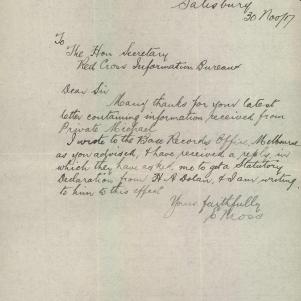 Salisbury
30 Nov/17
To
The Hon Secretary
Red Cross Information Bureau
Dear Sir
Many thanks for your latest
letter containing information received from
Private Michael
I wrote to the Base Records Office, Melbourne
as you advised, & have received a reply in
which they have asked me to get a Statutory
Declaration from H A Dolan, & I am writing
to him to this effect
Yours faithfully
Moss